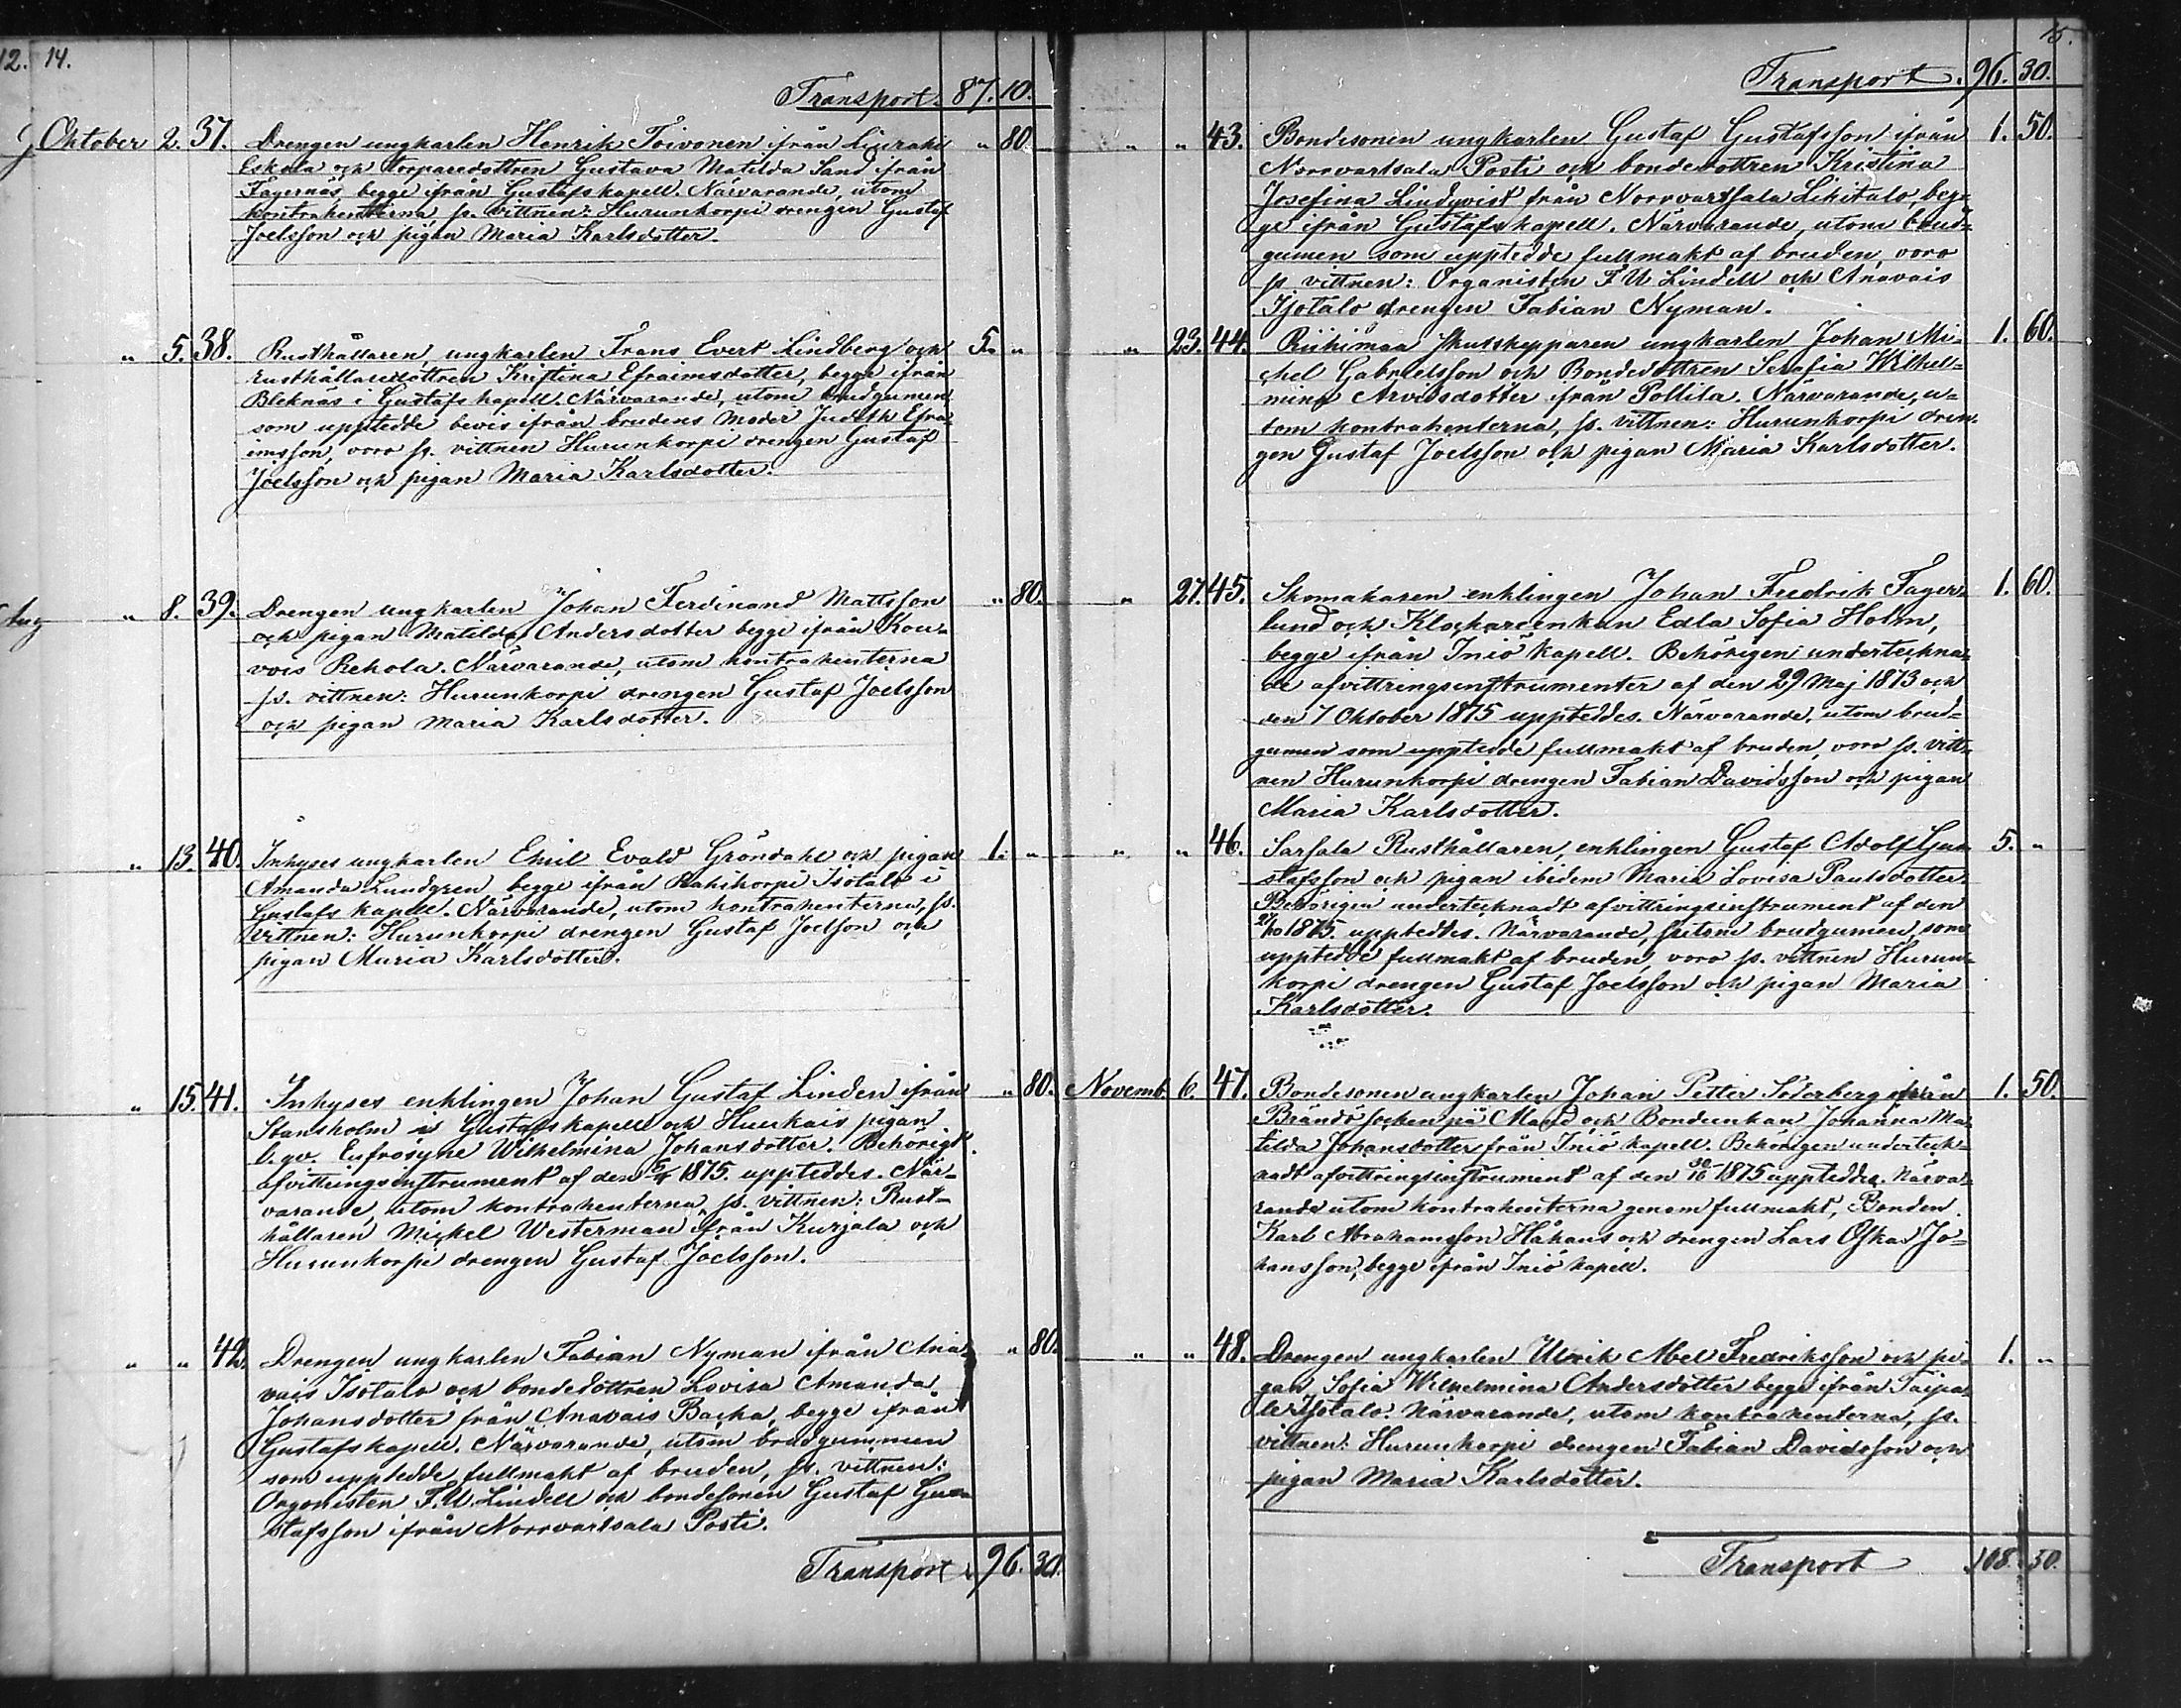 12. 14.
Transport. 87. 10.
Oktober 2. 37. Drengen ungkarlen Henrik Toivonen ifrån " 80.
Eskola och torparedottren Gustava Matilda Sand ifrån
Fagernäs, begge ifrån Gustafs kapell. Närvarande, utom
kontrahenterna, ss. vittnen: Hurunkorpi drengen Gustaf
Joelsson och pigan Maria Karlsdotter.
" 5. 38. Rusthållaren, ungkarlen Frans Evert Lindberg och 5. "
rusthållaredottren Kristina Efraimsdotter, begge ifrån
Bleknäs i Gustafs kapell. Närvarande, utom brudgumen
som upptedde bevis ifrån brudens moder Judith Efra-
imsson, voro ss. vittnen Hurunkorpi drengen Gustaf
Joelsson och pigan Maria Karlsdotter.
" 8. 39. Drengen ungkarlen Johan Ferdinand Mattsson " 80.
och pigan Matilda Andersdotter begge ifrån Kou-
vois Rekola. Närvarande, utom kontrahenterna
ss. vittnen: Hurunkorpi drengen Gustaf Joelsson
och pigan Maria Karlsdotter.
" 13. 40. Inhyses ungkarlen Emil Evald Gröndahl och pigan 1. "
Amanda Lundgren, begge ifrån Rahikorpi Isotalo i
Gustafs kapell. Närvarande, utom kontrahenterna, ss.
vittnen: Hurunkorpi drengen Gustaf Joelson och
pigan Maria Karlsdotter.
" 15. 41. Inhyses enklingen Johan Gustaf Linden ifrån " 80.
Stansholm i Gustafs kapell och Huukais pigan
Eufrosyne Wilhelmina Johansdotter. Behörigt
afvittringsinstrument af den 1875. uppteddes. När-
varande, utom kontrahenterna, ss. vittnen: Rust-
hållaren Mickel Westerman ifrån Kurjala och
Hurunkorpi drengen Gustaf Joelsson.
" " 42. Drengen ungkarlen Fabian Nyman ifrån Ana- " 80.
vais Isotalo och bondedottren Lovisa Amanda
Johansdotter från Anavais Backa, begge ifrån
Gustafs kapell. Närvarande, utom brudgummen
som upptedde fullmakt af bruden, ss. vittnen:
Organisten F. U. Lindell och bondesonen Gustaf Gu-
stafsson ifrån Norrvartsala Posti.
Transport 96. 30.
15.
Transport. 96. 30.
" " 43. Bondesonen ungkarlen Gustaf Gustafsson ifrån 1. 50.
Norrvartsala Posti och bondedottren Kristina
Josefina Lindqvist från Norrvartsala Likitalo, beg-
ge ifrån Gustafs kapell. Närvarande, utom brud-
gumen som upptedde fullmakt af bruden, voro
ss. vittnen: Organisten F U Lindell och Anavais
Isotalo drengen Fabian Nyman.
" 23. 44. Riihimaa skutskepparen ungkarlen Johan Mi- 1. 60.
chel Gabrielsson och Bondedottren Serafia Wilhel-
mina Arvidsdotter ifrån Pollila. Närvarande, u-
tom kontrahenterna, ss. vittnen: Hurunkorpi dren-
gen Gustaf Joelsson och pigan Maria Karlsdotter.
" 27. 45. Skomakaren enklingen Johan Fredrik Fager- 1. 60.
lund och Klockareenkan Edla Sofia Holm,
begge ifrån Iniö kapell. Behörigen underteckna-
de afvittringsinstrumenter af den 29 Maj 1873 och
den 7 Oktober 1875 uppteddes. Närvarande, utom brud-
gumen som upptedde fullmakt af bruden, voro ss. vitt-
nen Hurunkorpi drengen Fabian Davidsson och pigan
Maria Karlsdotter.
" " 46. Sarsala Rusthållaren, enklingen Gustaf Adolf Gu- 5. "
stafsson och pigan ibidem Maria Lovisa Paulsdotter.
Behörigen undertecknadt afvittringsinstrument af den
27/10 1875. uppteddes. Närvarande, utom brudgumen, som
upptedde fullmakt af bruden, voro ss. vittnen Hurun-
korpi drengen Gustaf Joelsson och pigan Maria
Karlsdotter.
Novemb. 6. 47. Bondesonen ungkarlen Johan Petter Söderberg ifrån 1. 50.
Brändö socken på Åland och Bondeenkan Johanna Ma-
tilda Johansdotter från Iniö kapell. Behörigen underteck-
nadt afvittringsinstrument af den 30/10 1875 uppteddes. Närva-
rande utom kontrahenterna genom fullmakt, Bonden
Karl Abrahamsson Håkans och drengen Lars Oskar Jo-
hansson, begge ifrån Iniö kapell.
" " 48. Drengen ungkarlen Ulrik Abel Fredriksson och pi- 1. "
gan Sofia Wilhelmina Andersdotter begge ifrån Taipa-
le Isotalo. Närvarande, utom kontrahenterna, ss.
vittnen: Hurunkorpi drengen Fabian Davidsson och
pigan Maria Karlsdotter.
Transport 108. 50.